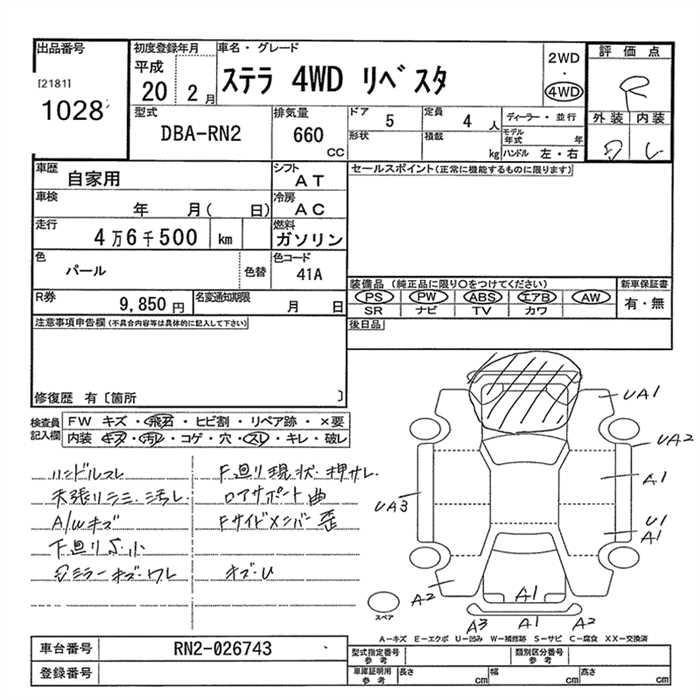 出品番号
[2181]
1028
初度登録年月
平成
20 2月
車名・グレード
ステラ 4WD リベスタ
2WD
・
4WD
評価点
R
外装 内装
D
型式
DBA-RN2
排気量
660
CC
ドア
5
定員
4 人
形状
積載
kg
ディーラー・並行
モデル年式 年
ハンドル 左・右
車歴
自家用
シフト
AT
車検
年 月( 日)
冷房
AC
走行
4万6千500 km
燃料
ガソリン
色
パール
色替
色コード
41A
R券
9,850円
名変通知期限
月 日
セールスポイント(正常に機能するものに限ります)
装備品 (純正品に限り○をつけてください)
PS PW ABS エアB AW
SR ナビ TV カワ
新車保証書
有・無
後日品
注意事項申告欄(不具合内容等は具体的に記入して下さい)
修復歴 有〔箇所 〕
検査員
記入欄
FW キズ・飛石・ヒビ割・リペア跡・×要
内装 キズ・汚れ・コゲ・穴・スレ・キレ・破レ
ハンドルスレ
天張りシミ・汚レ
A/Wキズ
下廻りS・小
ミラーキズ・ワレ
F廻り現状・押サレ
ロアサポート曲
Fサイドメンバー歪
キズ・U
UA1
UA2
A1
UA3
U1
A1
A2
A1
A3 A1 A2
スペア
A―キズ E―エクボ U―凹み W―補修跡 S―サビ C―腐食 XX―交換済
車台番号
RN2-026743
登録番号
型式指定番号
参考
類別区分番号
参考
車庫証明用
参考
長さ cm
幅 cm
高さ cm